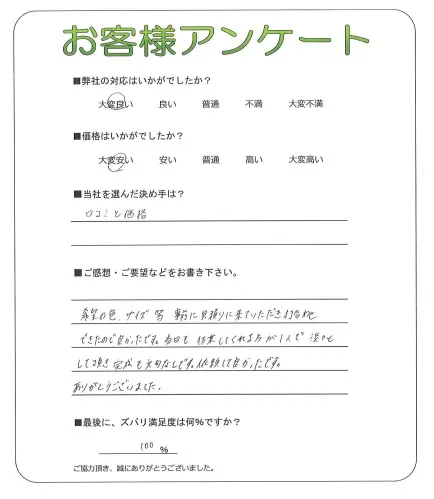 お客様アンケート
■弊社の対応はいかがでしたか?
大変良い 良い 普通 不満 大変不満
■価格はいかがでしたか?
大変安い 安い 普通 高い 大変高い
■当社を選んだ決め手は?
口コミと価格
■ご感想・ご要望などをお書き下さい。
希望の色、サイズ等 事前に見積りに来ていただき打合わせ
できたので良かったです。当日も作業してくれる方が1人で
して頂き完成も文句なしです。依頼して良かったです。
ありがとうございました。
■最後に、ズバリ満足度は何%ですか?
100 %
ご協力頂き、誠にありがとうございました。